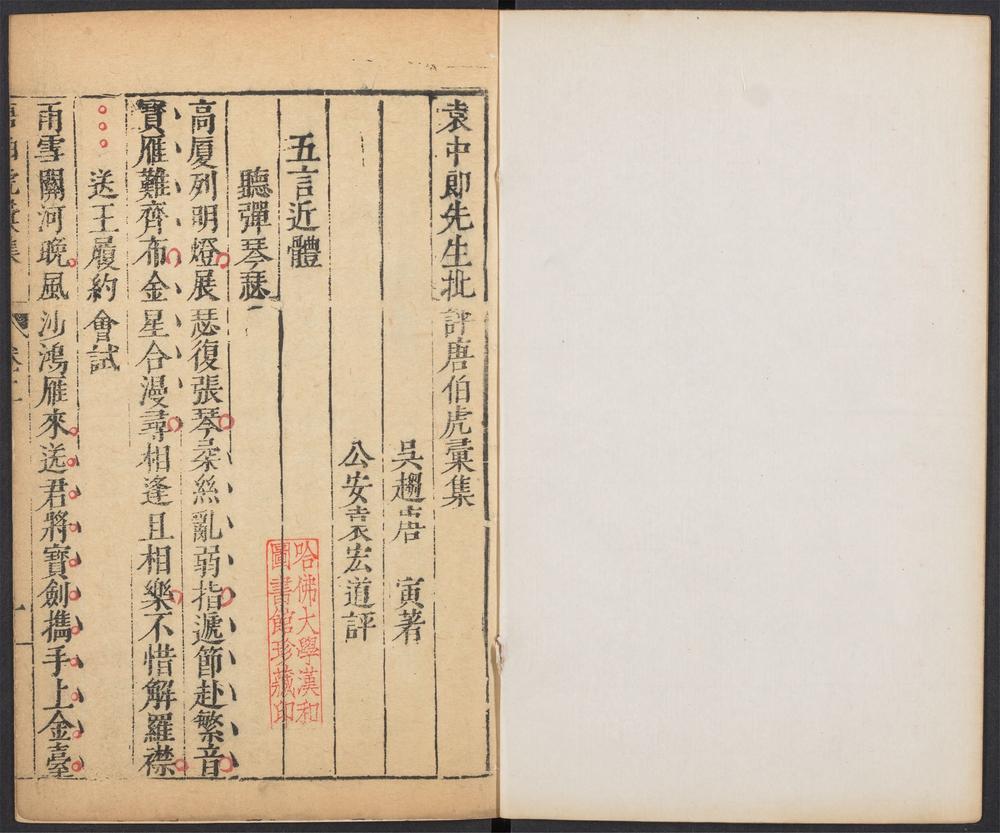 袁中郎先生批評唐伯虎彙集
吳趨唐　寅著
公安袁宏道評
五言近體
聽彈琴瑟
高厦列明燈展瑟復張琴朶絲亂弱指遞節赴繁音
寶雁難齊布金星合漫尋相逢且相樂不惜解羅襟
送王履約會試
雨雪關河晚風沙鴻雁來送君將寶劍攜手上金臺
哈佛大學漢和
圖書館珍藏印